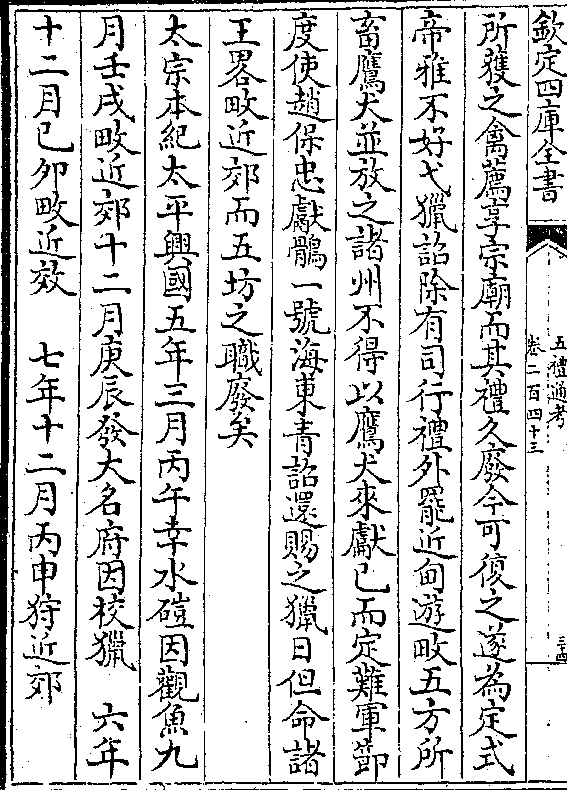 欽定四庫全書
五禮通考
卷二百四十三
三十四
所獲之禽薦享宗廟而其禮久廢今可復之遂為定式
帝雅不好弋獵詔除有司行禮外罷近甸游畋五方所
畜鷹犬並放之諸州不得以鷹犬來獻已而定難軍節
度使趙保忠獻鶻一號海東青詔還賜之獵日但命諸
王畧畋近郊而五坊之職廢矣
太宗本紀太平興國五年三月丙午幸水磑因觀魚九
月壬戌畋近郊十二月庚辰發大名府因校獵　六年
十二月己卯畋近效　七年十二月丙申狩近郊